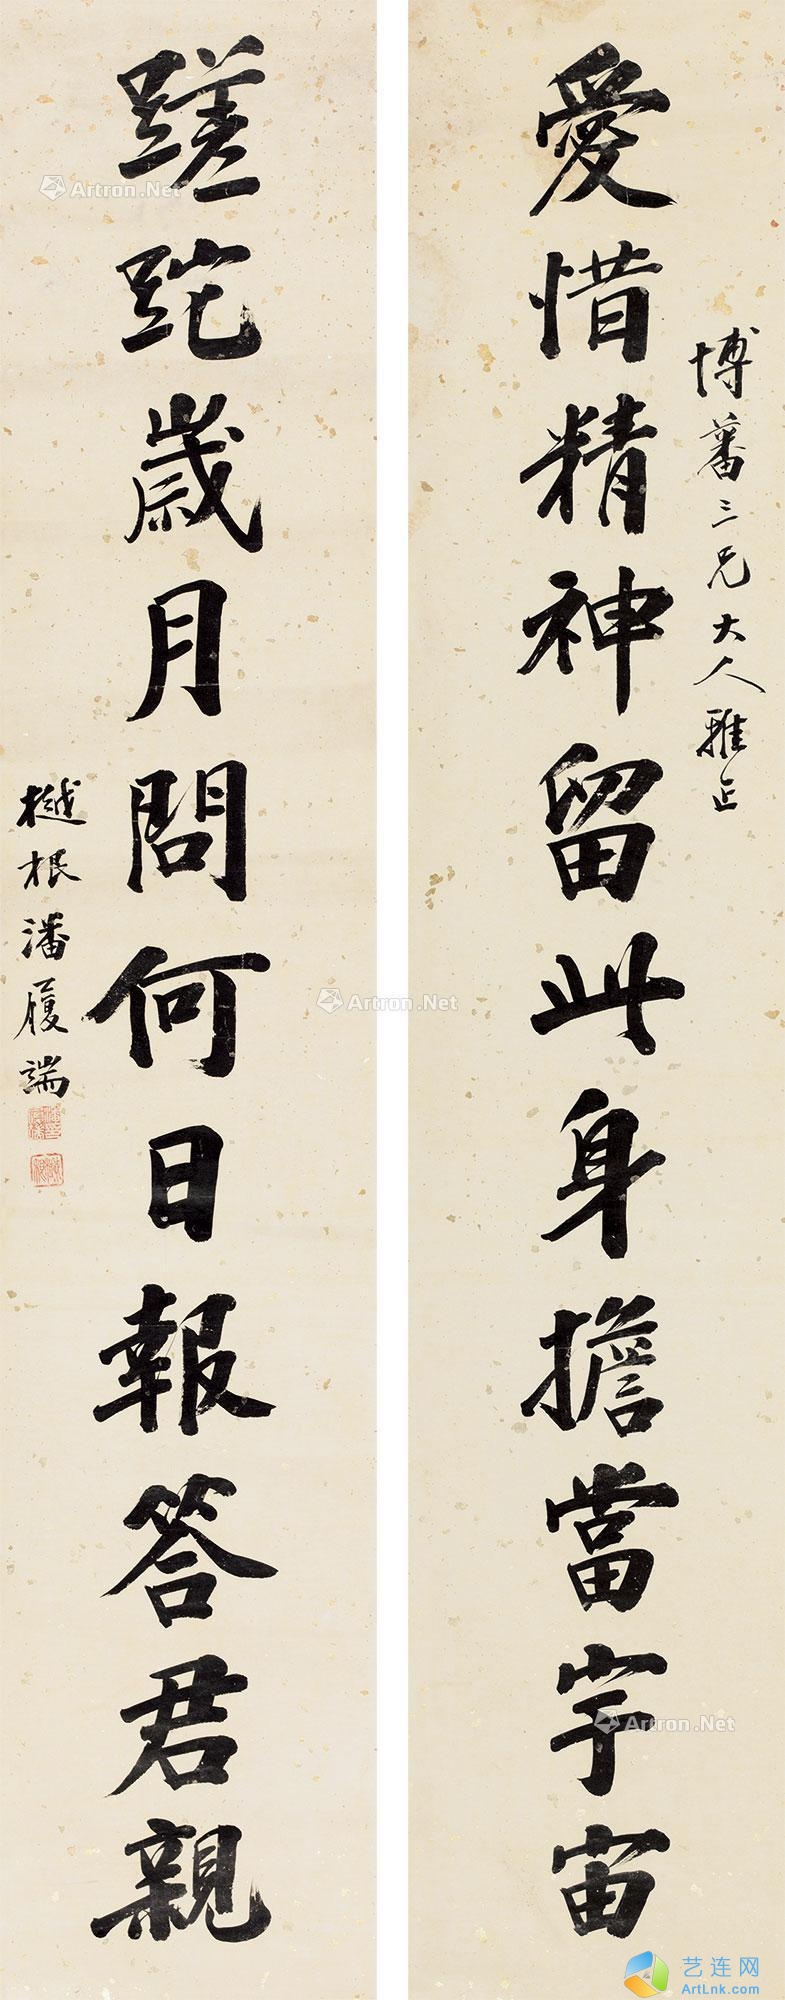 愛惜精神留此身擔當宇宙
博蕃三兄大人雅正
蹉跎歲月問何日報答君親
樾根潘履端
Artron.Net
Artron.Net
Artron.Net
艺连网
ArtLnk.com